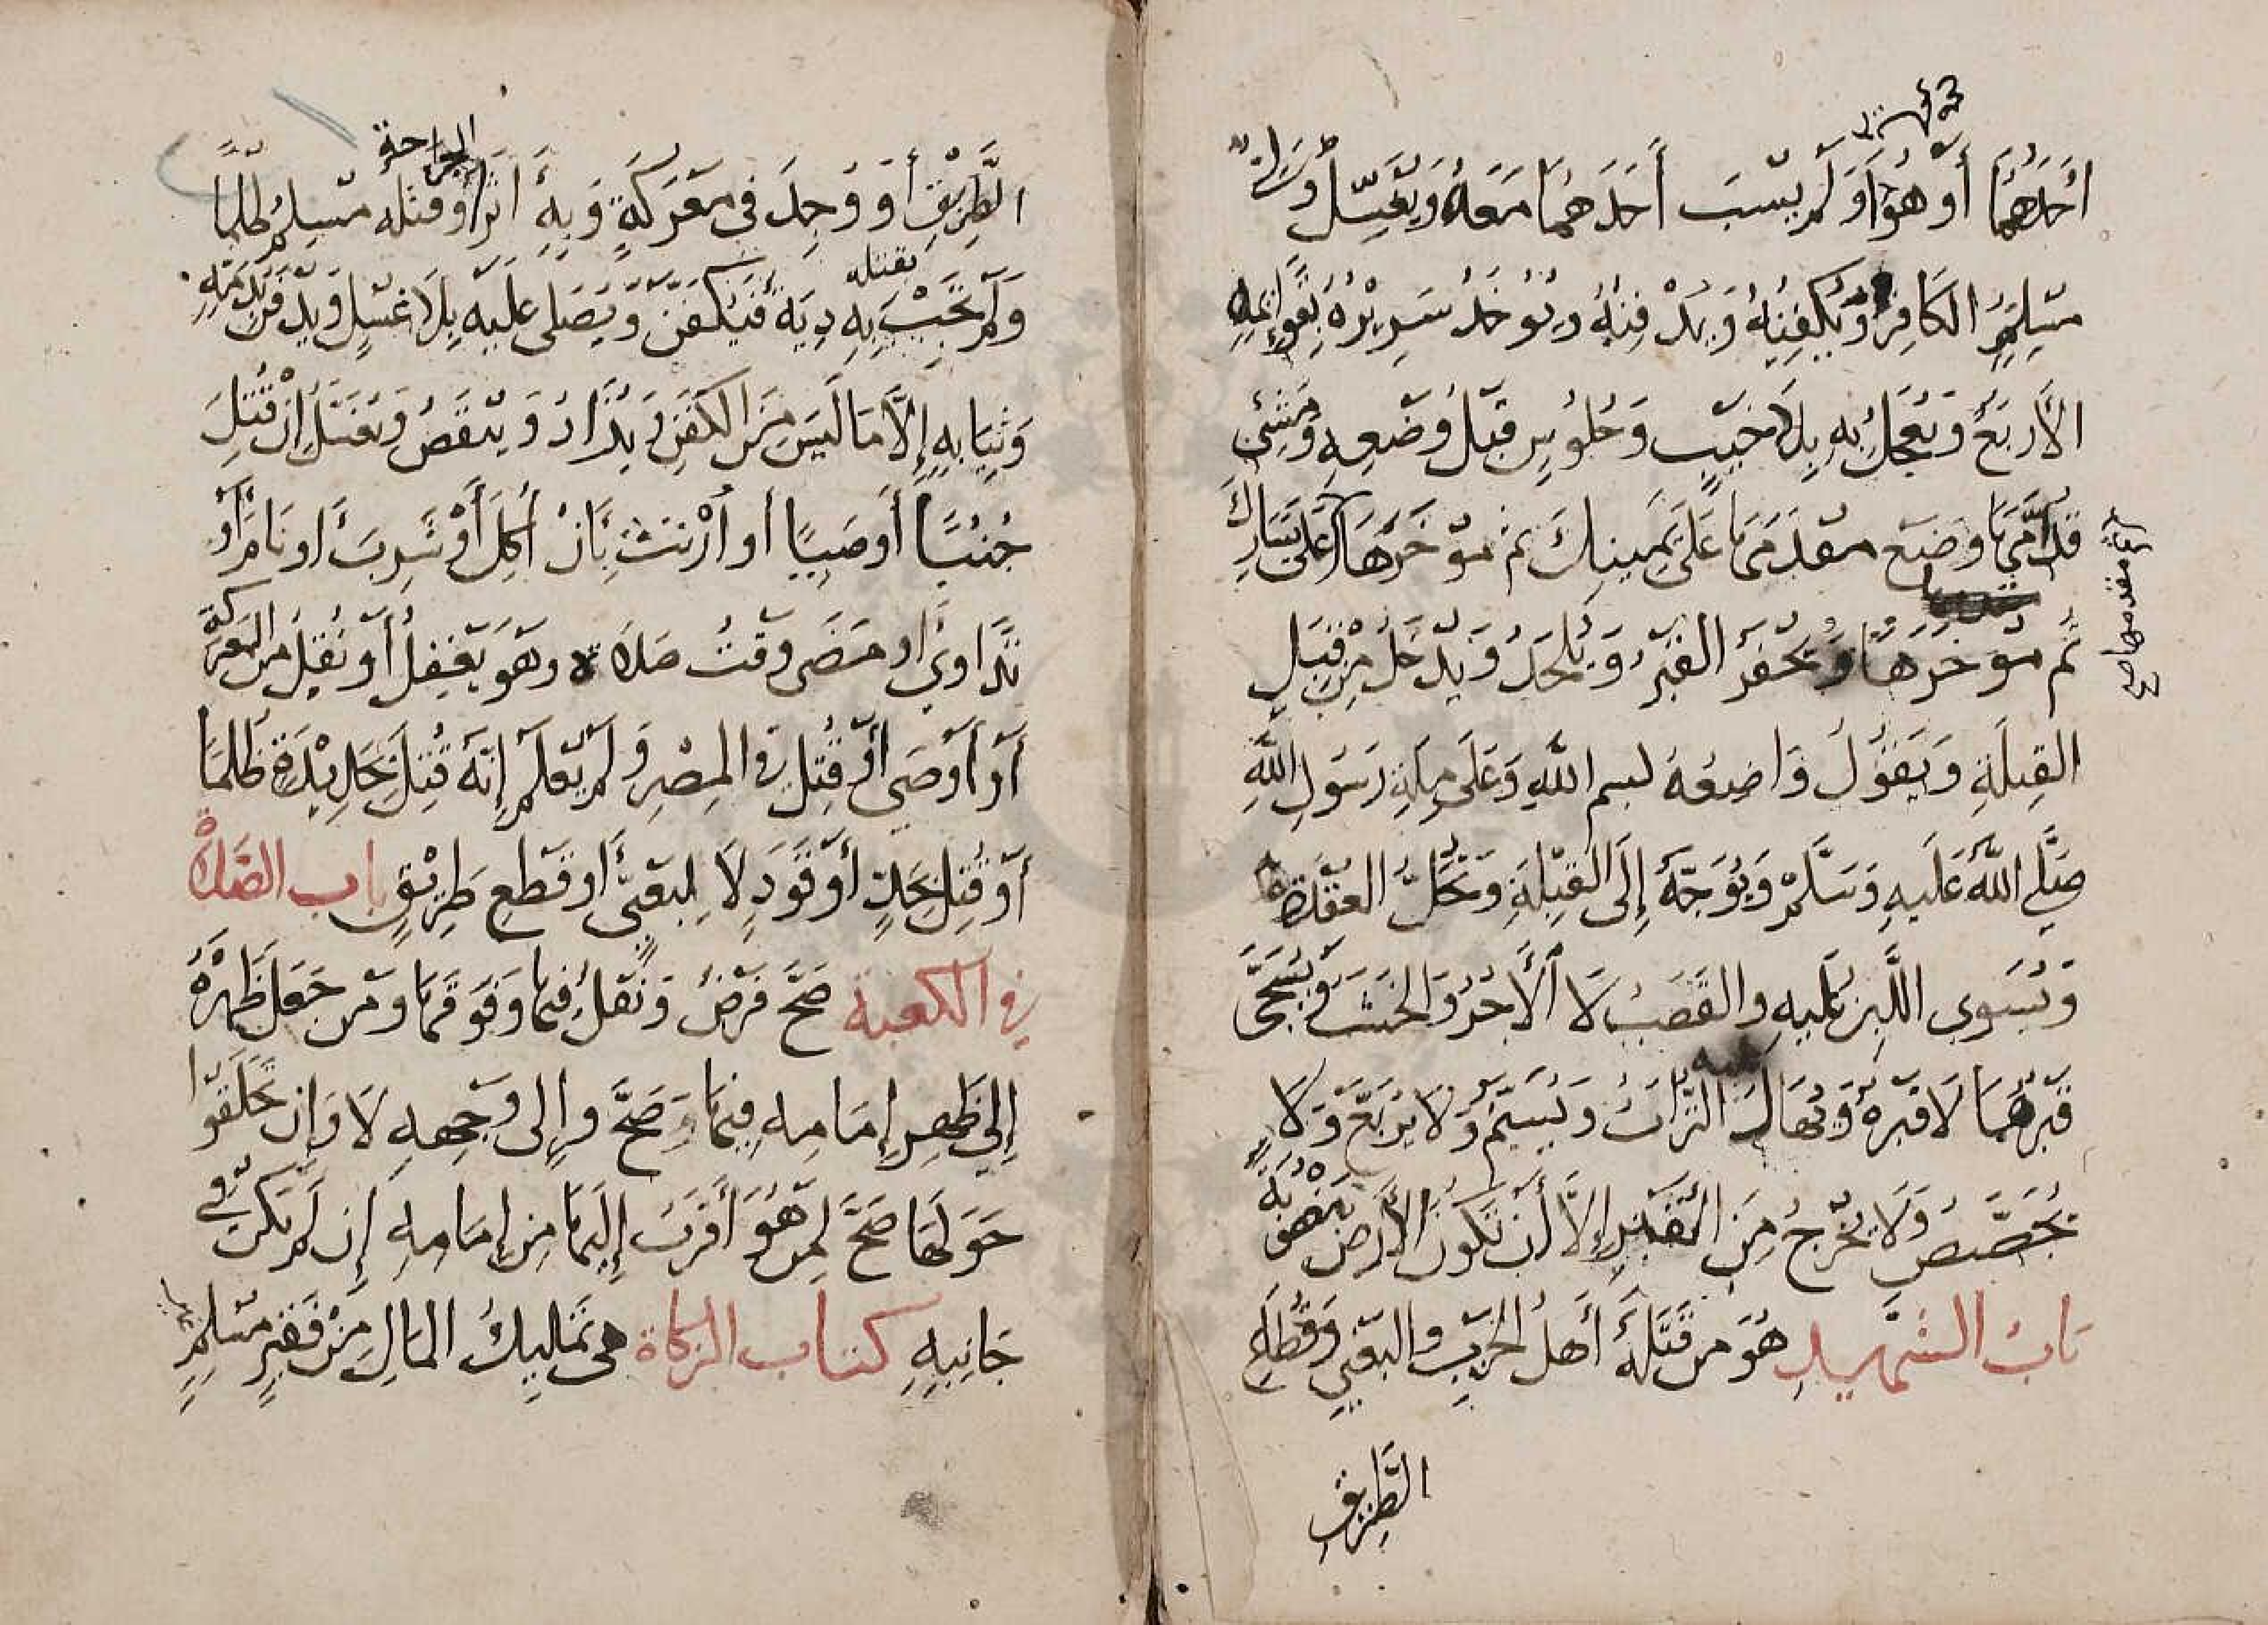 احَدُهُمَا أَوْ هُوَ أَوْ لَمْ يُسْبَ أَحَدُهُمَا مَعَهُ وَيُغَسِّلُ وَلِيٌّ
مُسْلِمٌ الكَافِرَ وَيُكَفِّنُهُ وَيَدْفِنُهُ وَيُؤْخَذُ سَرِيْرُهُ بِقَوَائِمِهِ
الأَرْبَعِ وَيُعَجَّلُ بِهِ بِلَا خَبَبٍ وَجُلُوسٍ قَبْلَ وَضْعِهِ وَمَشْيٍ
قُدَّامَهَا وَضَعْ مُقَدَّمَهَا عَلَى يَمِينِكَ ثُمَّ مُؤَخَّرَهَا عَلَى يَسَارِكَ
ثُمَّ مُؤَخَّرَهَا وَيُحْفَرُ القَبْرُ وَيُلْحَدُ وَيُدْخَلُ مِنْ قِبَلِ
القِبْلَةِ وَيَقُوْلُ وَاضِعُهُ بسم اللهِ وَعَلَى مِلَّةِ رَسُولِ اللهِ
صَلَّى اللهُ عَلَيهِ وَسَلَّمْ وَيُوَجَّهُ إِلَى القِبْلَةِ وَتُحَلُّ العُقْدَةُ
وَيُسَوى اللَّبِنُ عَلَيهِ والقَصَبُ لَا الْأَجُرُّ وَالخَشَبُ وَيُسَجَّى
قَبْرُهَا لَا قَبْرُهُ وَيُهَالُ عليه التُّرَابُ وَيُسَنَّمُ وَلَا يُرَبَّعُ وَلَا
يُجَصَّصُ وَلَا يُخْرَجُ مِنَ القَبْرِ إِلَّا أَن تَكُونَ الأَرْضُ مَغْصُوْبَةً
بَابُ الشَّهِيدِ هُوَ مَن قَتَلَهُ أَهْلُ الحَرْبِ والبَغْيِ وَقُطَّاعِ
الطَّرِيقِ
الطَّرِيْقِ أَوْ وُجِدَ فِي مَعْرَكَةٍ وَبِهِ أَثَرُ الجراحة أو قتله مُسْلِمٌ ظلمًا
وَلَمْ تَجِبْ بقتله بِهِ دِيَةٌ فَيُكَفَّنُ وَيُصَلى عَلَيْهِ بِلَا غُسْلٍ وَيُدْفَنُ بِدَمِهِ
وَثِيَابِهِ إِلَّا مَا لَيْسَ مِنَ الكَفَنِ وَيُزَادُ وَيُنْقَصُ وَيُغْسَلُ إِنْ قُتِلَ
جُنُبًا أَو صَبِيًا أو اُرْتُثَ بِأَنْ أَكَلَ أَوْ شَرِبَ أَو نَامَ أَوْ
تَدَاوَى أَو مَضَى وَقْتُ صَلَاة وَهُوَ يَعْقِلُ أَوْ نُقِلَ مِنَ المَعركة
أَوْ أَوْصَى أَوْ قُتِلَ في المِصْرِ وَلَمْ يُعْلَمْ إِنَّهُ قُتِلَ بِحَدِيْدَةٍ ظُلْمًا
أَوْ قُتِلَ بِحَدٍّ أَوْ قَوَدٍ لَا لِبَغْيٍ أَو قَطْعِ طَرِيْقٍ باب الصَّلَاةْ
في الكعبة صَحَّ فَرْضٌ وَنَفْلٌ فِيهَا وَفَوْقَهَا وَمَنْ جَعَلَ ظَهْرَهُ
إِلَى ظَهْرِ إِمَامِهِ فِيهَا صَحَّ وإِلى وَجْهِهِ لَا وَإِن تَحَلَّقُوا
حَوْلَهَا صَحَّ لِمَنْ هُوَ أَقْرَبُ إِلَيْهَا مِن إِمَامِهِ إِن لَمْ يَكُنْ في
جَانِبِهِ كتاب الزكاة هي تَمْلِيكُ المَالِ مِنْ فَقِيرٍ مُسْلِمٍ